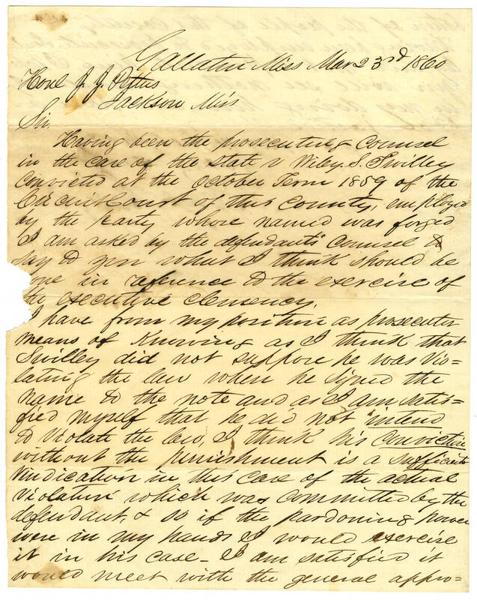 Gallatin Miss Mar 23rd 1860
Honl J. J. Pettus
Jackson Miss
Sir
Having been the prosecuting Counsel
in the case of the State v Wiley S. Swilley
convicted at the October Term 1859 of the
Circuit Court of this County, employed
by the party whose named was forged
I am asked by the defendants Counsel to
say to you what I think should be
one in reference to the exercise of
the executive clemency.
I have from my position as prosecuter
means of knowing as I think that
Swilley did not suppose he was vio-
lating the law when he signed the
name to the note and as I am satis-
fied myself that he did not intend
to violate the law, I think his conviction
without the punishment is a sufficient
vindication in this case of the actual
violation which was committed by the
defendant, & so if the pardoning power
were in my hands I would exercise
it in his case - I am satisfied it
would meet with the general appro-